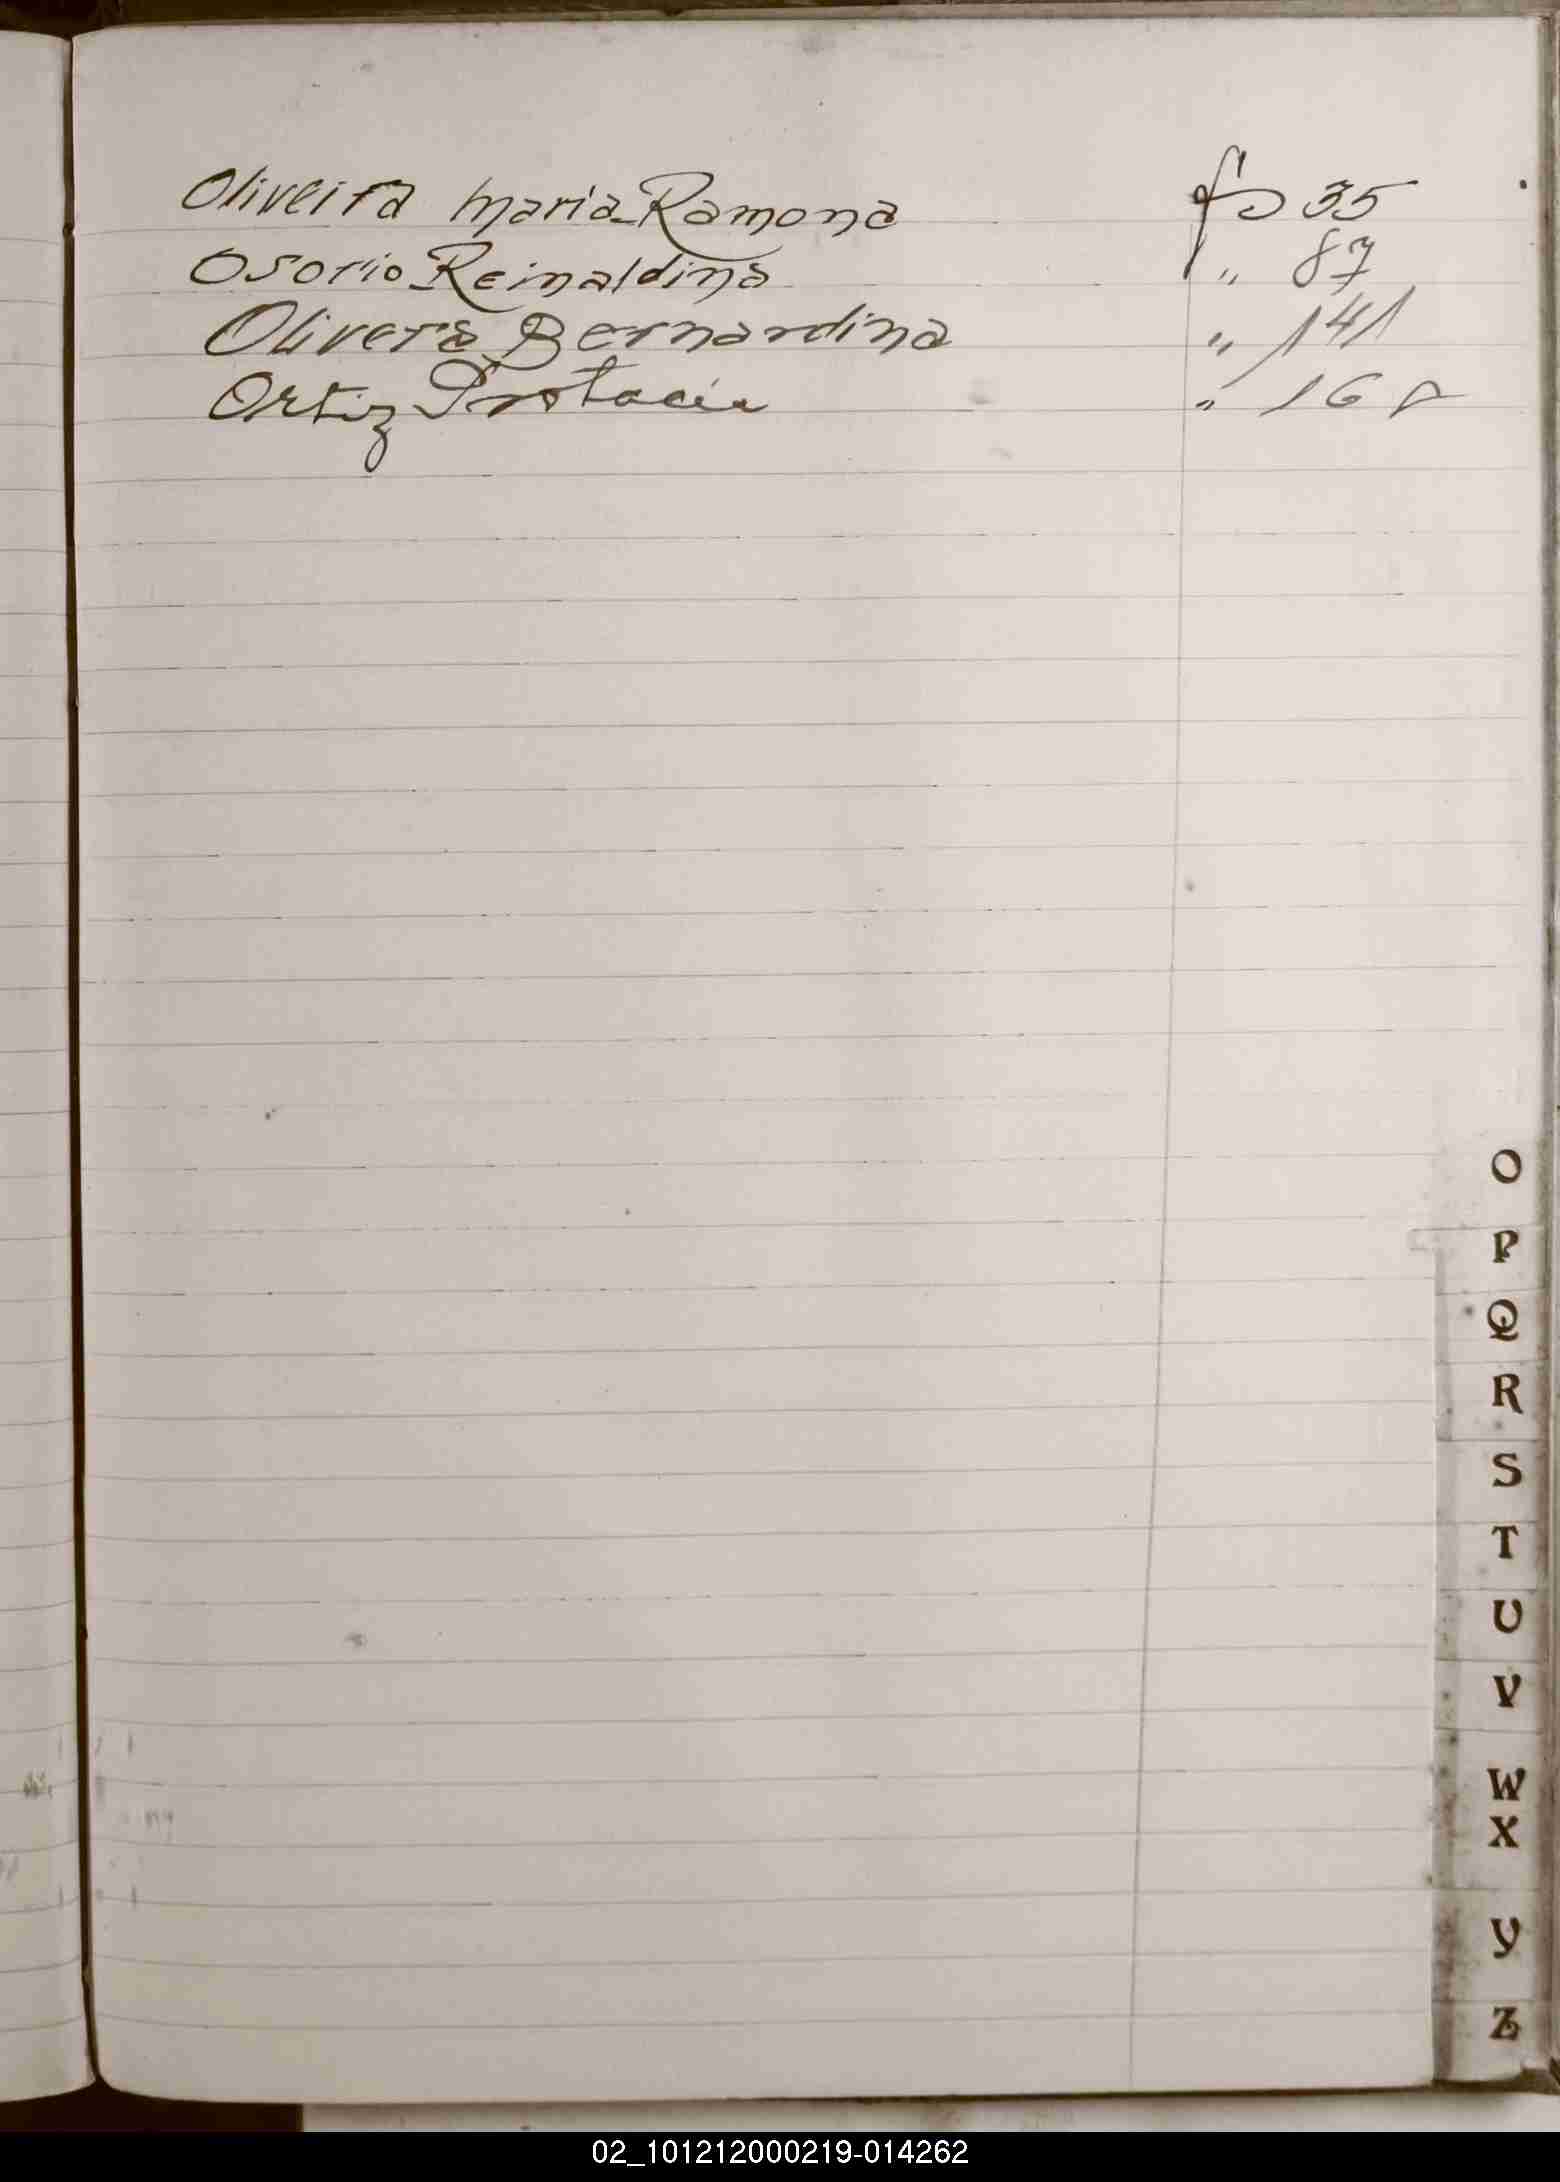 Oliveira Maria Ramona fs 35
Osorio Reinaldina " 87
Olivera Bernardina " 141
Ortiz Protacia "
O
P
Q
R
S
T
U
V
W
X
Y
Z
02_101212000219-014262